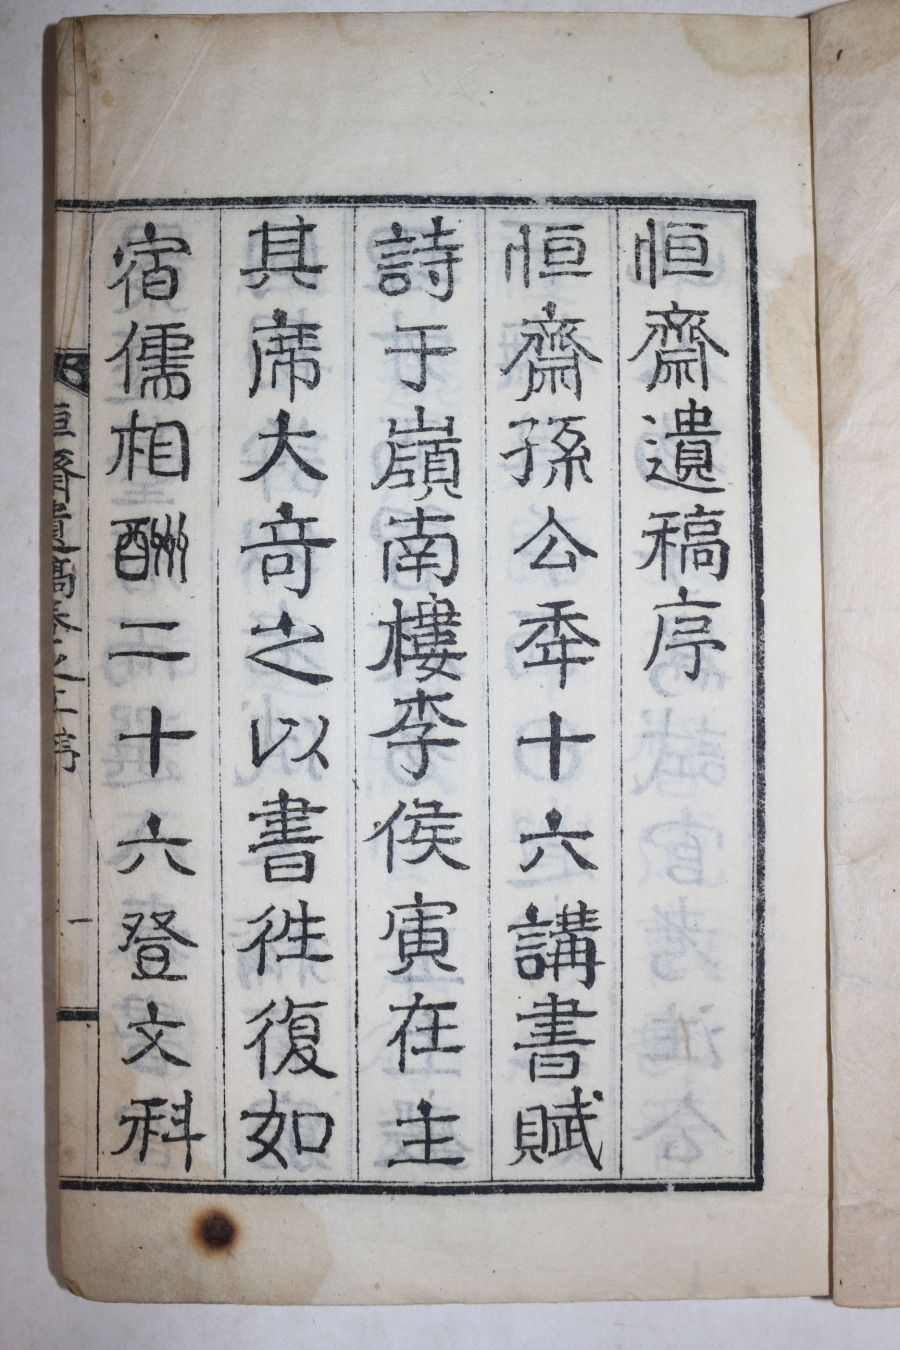 恒齋遺稿序
恒齋孫公秊十六講書賦
詩于嶺南樓李侯寅在主
其席大竒之以書徃復如
宿儒相酬二十六登文科
恒齋遺稿卷之上 序 一